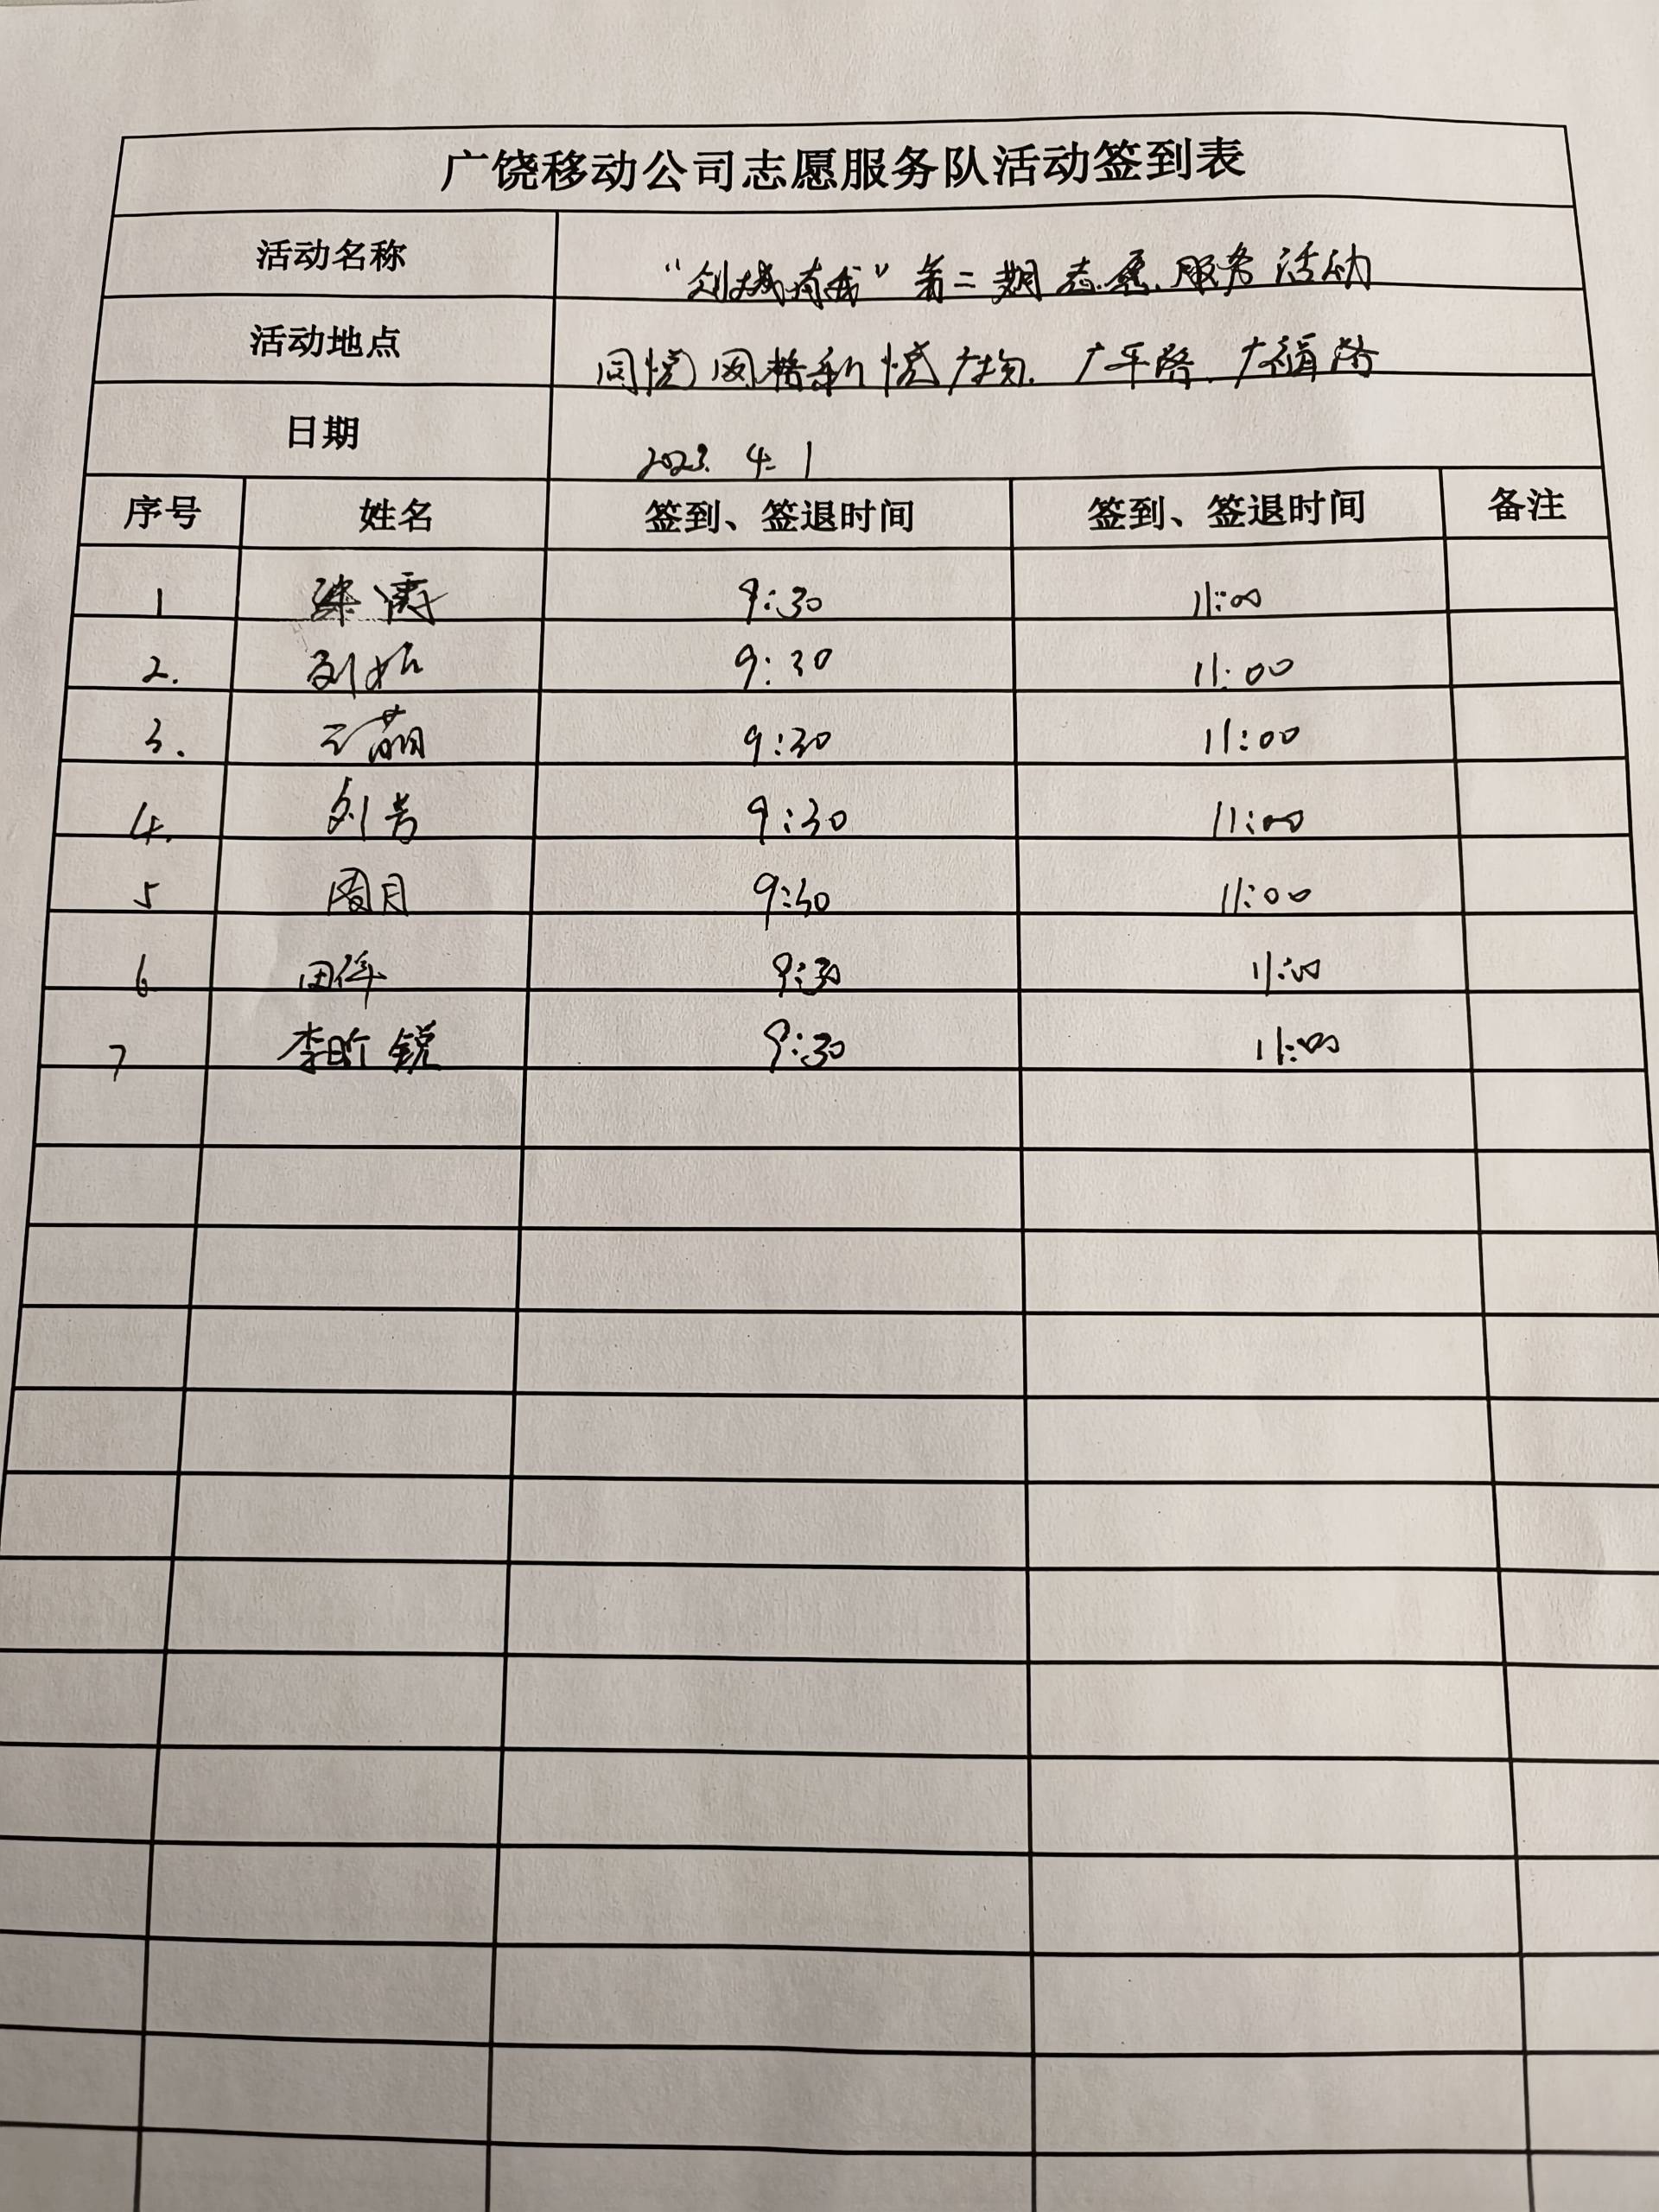 广饶移动公司志愿服务队活动签到表
活动名称 “创城有我”第二期志愿服务活动
活动地点 同悦网格新悦广场、广平路、广颜路
日期 2023. 4. 1
序号 姓名 签到、签退时间 签到、签退时间 备注
1 9:30 11:00
2. 刘 9:30 11:00
3. 萌 9:30 11:00
4. 刘芳 9:30 11:00
5 周月 9:30 11:00
6 田伟 9:30 11:00
7 李昕锐 9:30 11:00